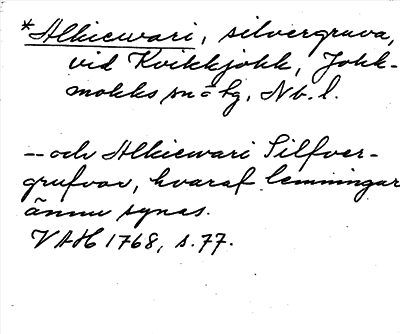 *Alkiewari, silvergruva,
vid Kvikkjokk, Jokk-
mokks sn o lg, Nb. l.
-- och Alkiewari Silfver-
grufvor, hvaraf lemningar
ännu synas.
VAH 1768, s. 77.